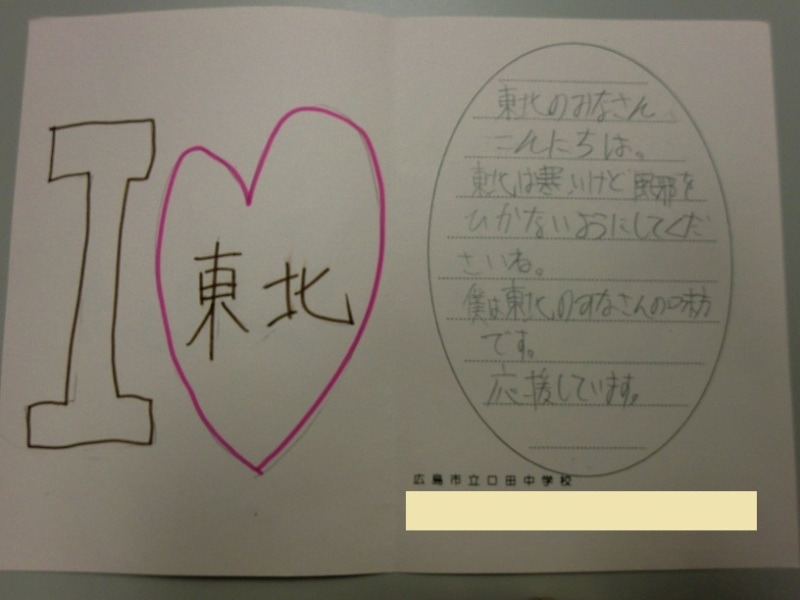 I
東北
東北のみなさん
こんにちは。
東北は寒いけど風邪を
ひかないようにしてくだ
さいね。
僕は東北のみなさんの味方
です。
応援しています。
広島市立口田中学校